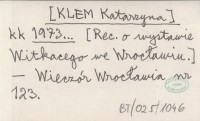 [KLEM Katarzyna]
kk 1973... [Rec. o wystawie
Witkacego we Wrocławiu.]
— Wieczór Wrocławia nr
123.
BJ/025/1046